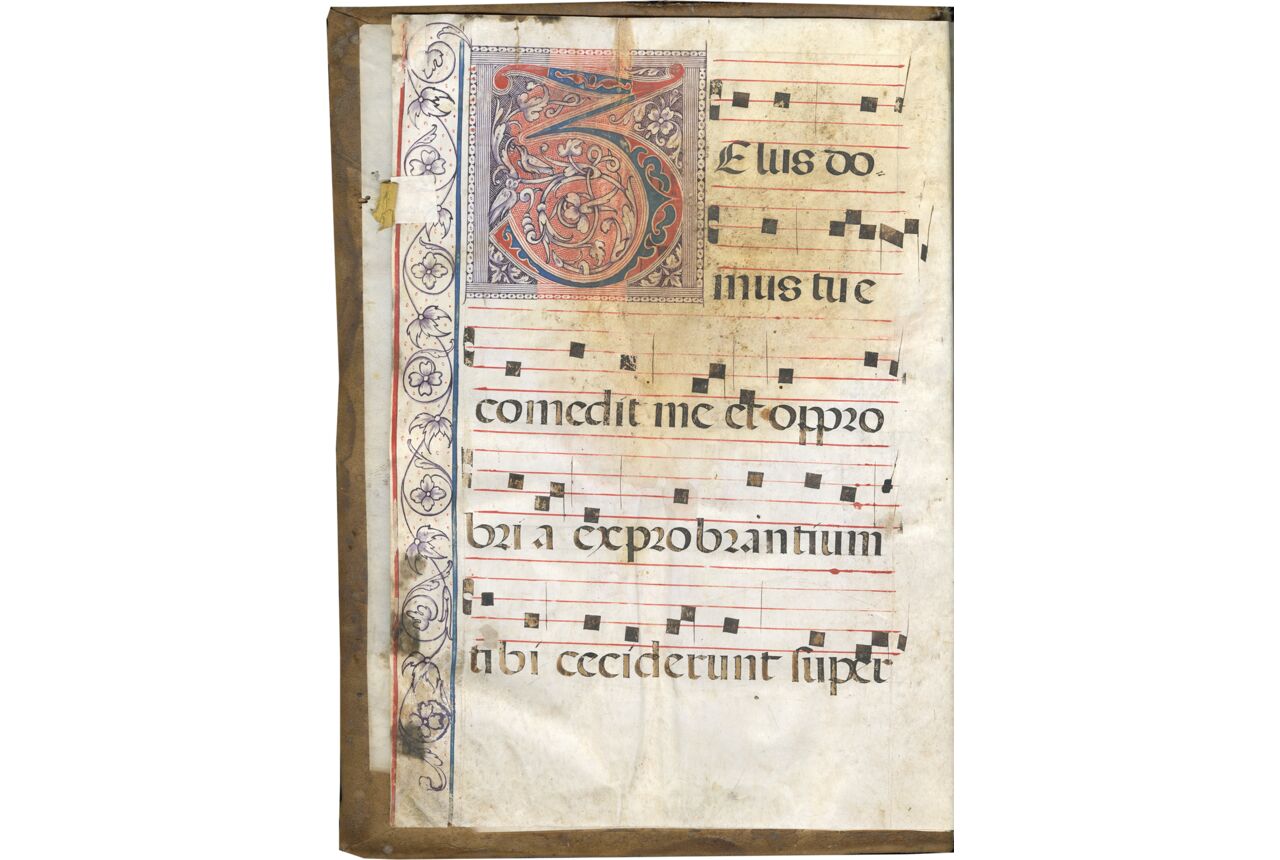 ZElus do
mus tue
comedit me et oppro
bria exprobrantium
tibi ceciderunt super